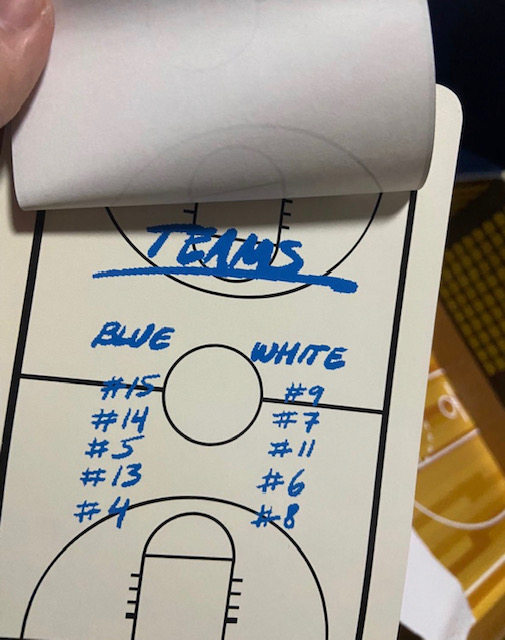 TEAMS
BLUE WHITE
#15 #9
#14 #7
#5 #11
#13 #6
#4 #8